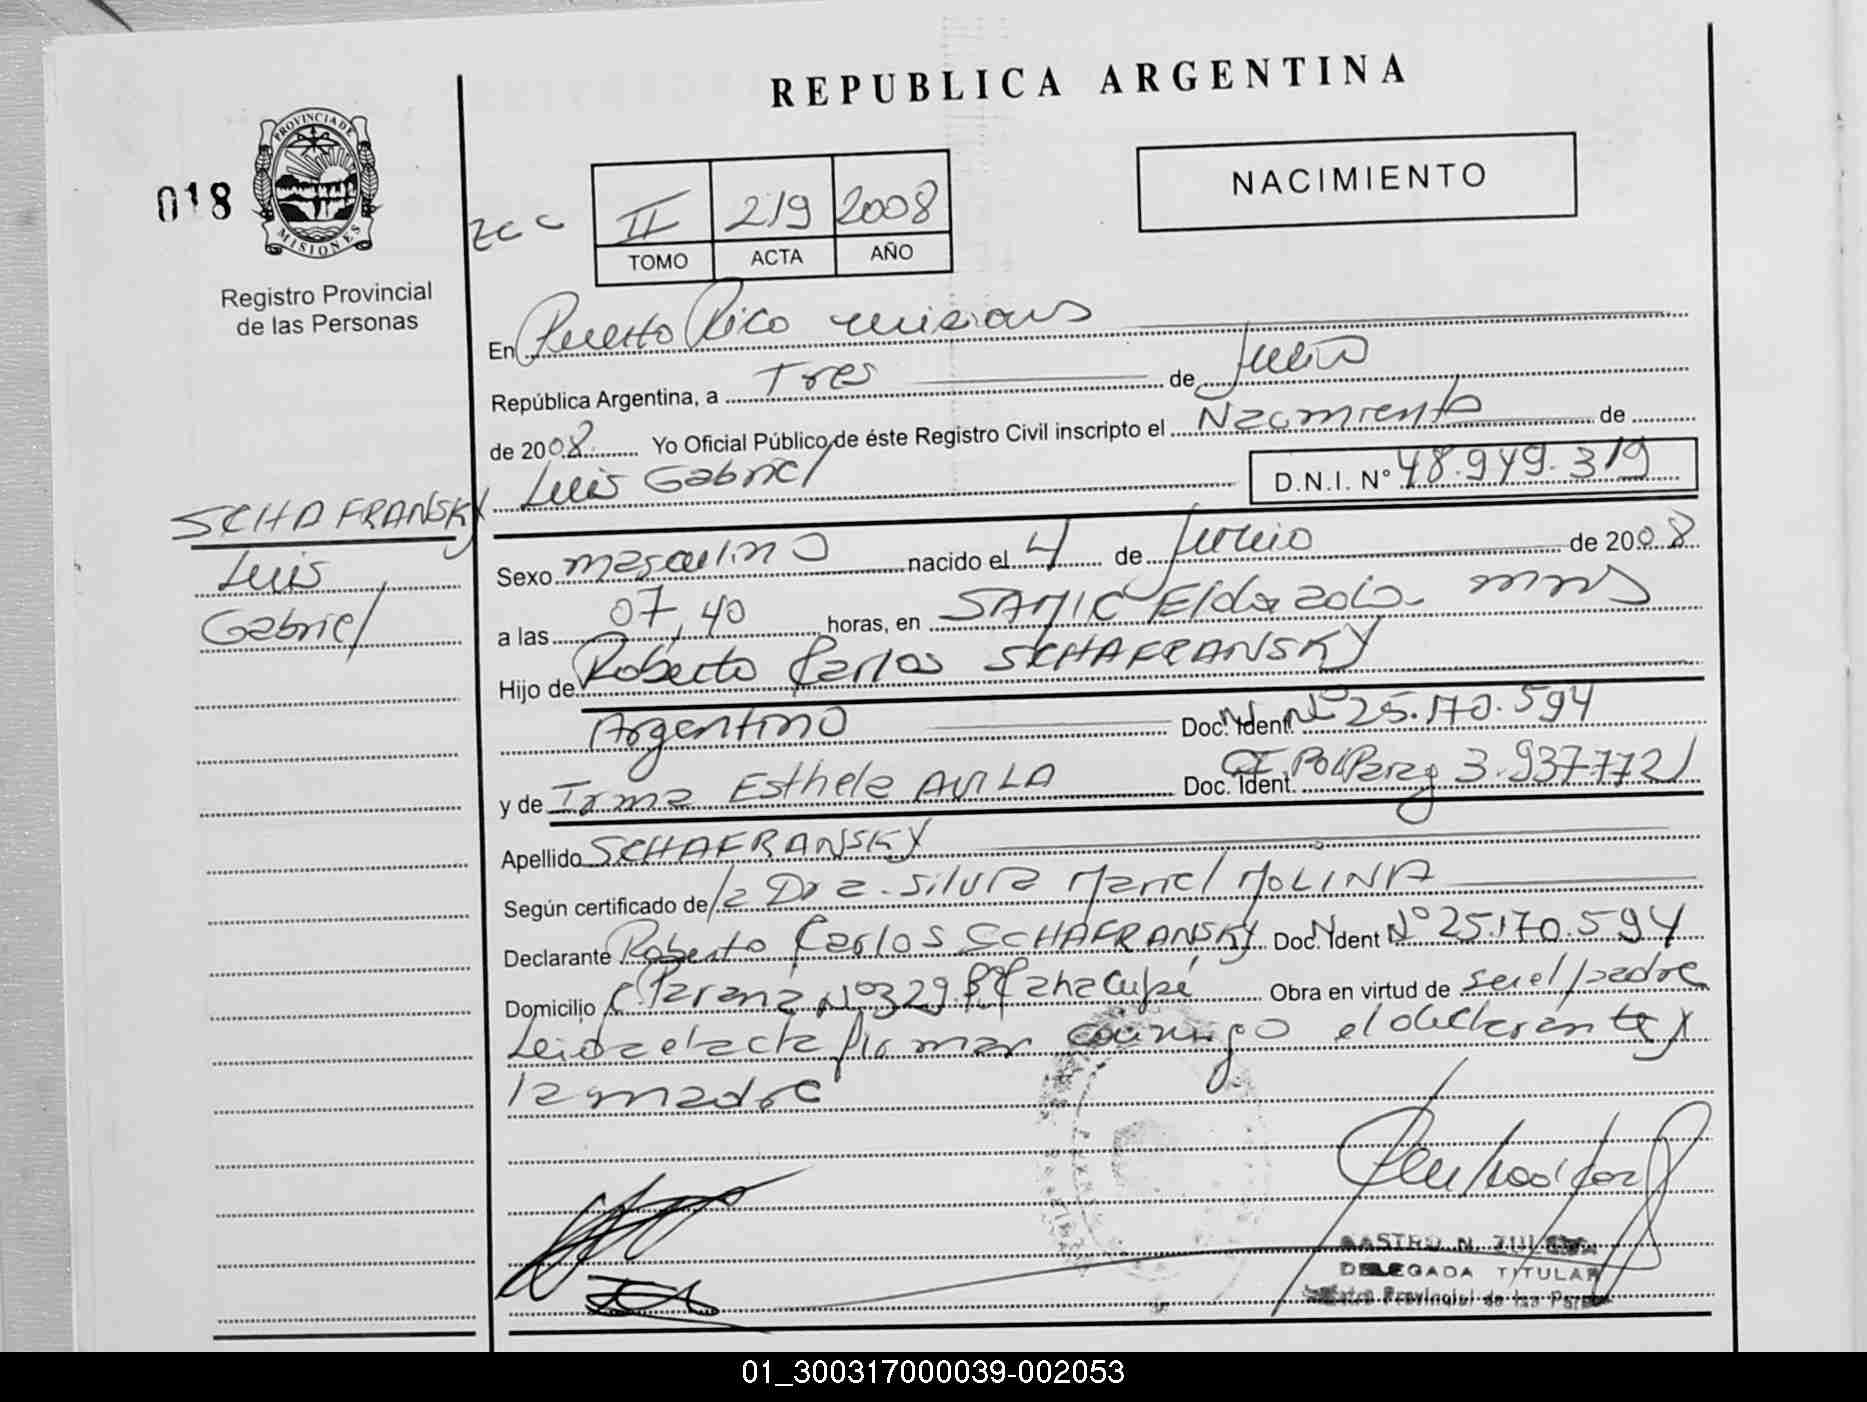 REPUBLICA ARGENTINA
PROVINCIA DE
MISIONES
018
Registro Provincial
de las Personas
NACIMIENTO
II 219 2008
TOMO ACTA AÑO
En Puerto Rico misiones
República Argentina, a Tres de Julio
de 2008 Yo Oficial Público de éste Registro Civil inscripto el Nacimiento de
Luis Gabriel D.N.I. Nº 48.949.319
SCHAFRANSKY
Luis
Gabriel
Sexo masculino nacido el 4 de Junio de 2008
a las 07,40 horas, en SAMIC Eldorado mns
Hijo de Roberto Carlos SCHAFRANSKY
Argentino Doc. Ident. Nº 25.170.594
y de Irma Esthela AVILA Doc. Ident. CI Pol Parag 3.937.772
Apellido SCHAFRANSKY
Según certificado de la Dra. Silvia Mariel MOLINA
Declarante Roberto Carlos SCHAFRANSKY Doc. Ident Nº 25.170.594
Domicilio C. Parana Nº 329 Bº Obra en virtud de ser el padre
Leida el acta firman conmigo el declarante y
la madre
DELEGADA TITULAR
Registro Provincial de las Personas
01_300317000039-002053